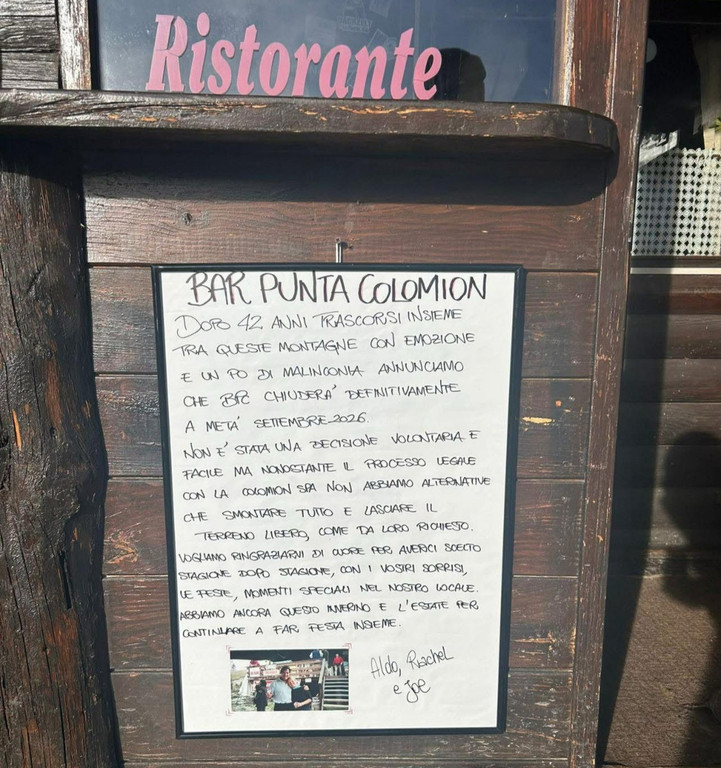 Ristorante
BAR PUNTA COLOMION
DOPO 42 ANNI TRASCORSI INSIEME
TRA QUESTE MONTAGNE CON EMOZIONE
E UN PO DI MALINCONIA ANNUNCIAMO
CHE BPC CHIUDERA' DEFINITIVAMENTE
A META' SETTEMBRE 2026.
NON E' STATA UNA DECISIONE VOLONTARIA E
FACILE MA NONOSTANTE IL PROCESSO LEGALE
CON LA COLOMION SPA NON ABBIAMO ALTERNATIVE
CHE SMONTARE TUTTO E LASCIARE IL
TERRENO LIBERO, COME DA LORO RICHIESTO.
VOGLIAMO RINGRAZIARVI DI CUORE PER AVERCI SCELTO
STAGIONE DOPO STAGIONE, CON I VOSTRI SORRISI,
LE FESTE, MOMENTI SPECIALI NEL NOSTRO LOCALE.
ABBIAMO ANCORA QUESTO INVERNO E L'ESTATE PER
CONTINUARE A FAR FESTA INSIEME.
Aldo, Rachel
e Joe